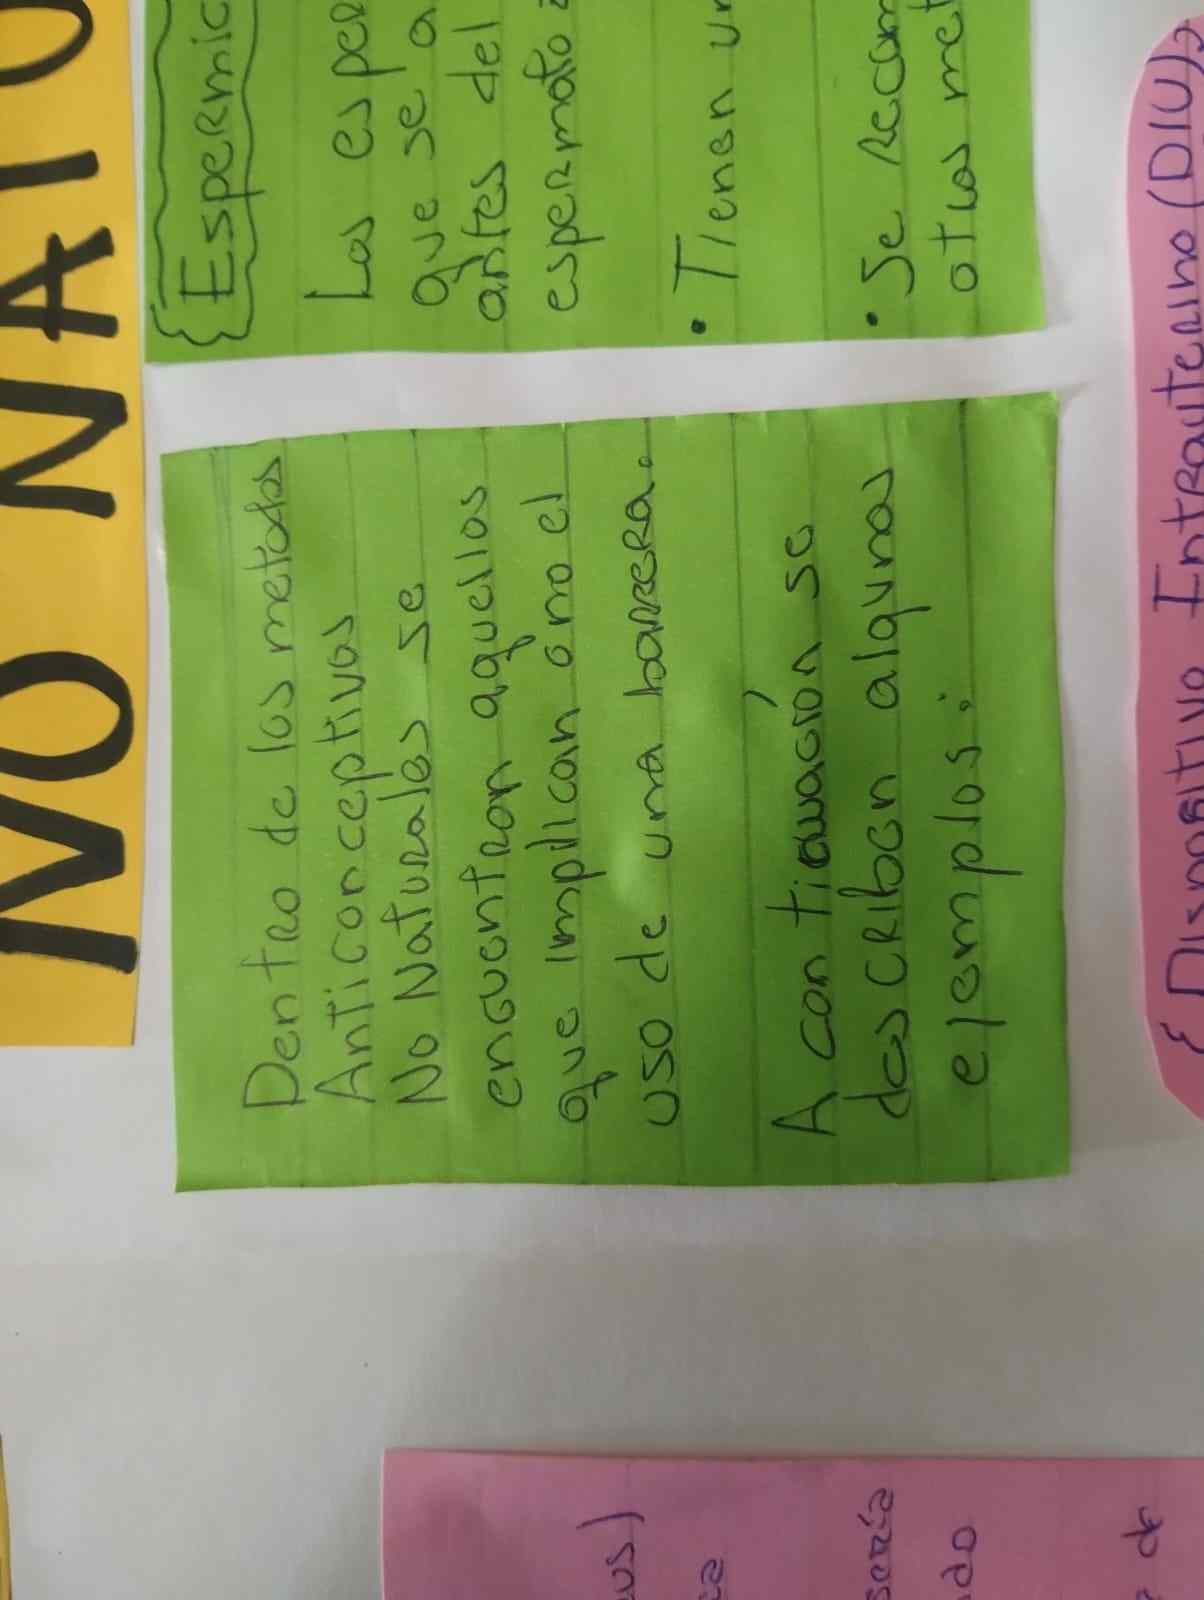 NO NATU
Dentro de los metodos
Anticonceptivos
No Naturales se
encuentran aquellos
que implican o no el
uso de una barrera.
A continuación se
describen algunos
ejemplos:
Espermic
Los esper
que se a
antes del
espermato
• Tienen un
• Se recom
otros met
Dispositivo Intrauterino (DIU)
sería
ado
de